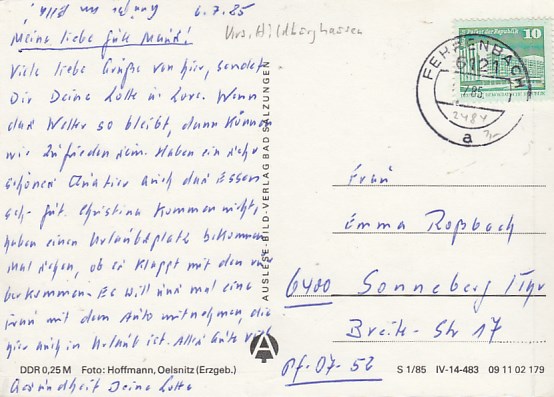 6.7.85
Krs. Hildburghausen
Meine liebe gute Mutti!
Viele liebe Grüße von hier, sendet
Dir Deine Lotte u. Lore. Wenn
das Wetter so bleibt, dann können
wir zufrieden sein. Haben ein sehr
schönes Quatier auch das Essen
sch. gut. Christina kommen nicht,
haben einen Urlaubsplatz bekommen
mal sehen, ob es klappt mit den
berkommen. Es will uns mal eine
Frau mit dem Auto mitnehmen die
hier auch in Urlaub ist. Alles Gute viel
Gesundheit Deine Lotte
DDR 0,25 M Foto: Hoffmann, Oelsnitz (Erzgeb.)
AUSLESE-BILD-VERLAG BAD SALZUNGEN
A
10
FEHRENBACH
6121
7.85
a
2484
Frau
Emma Roßbach
6400 Sonneberg Thür
Breite-Str 17
Pf-07-52
S 1/85 IV-14-483 09 11 02 179